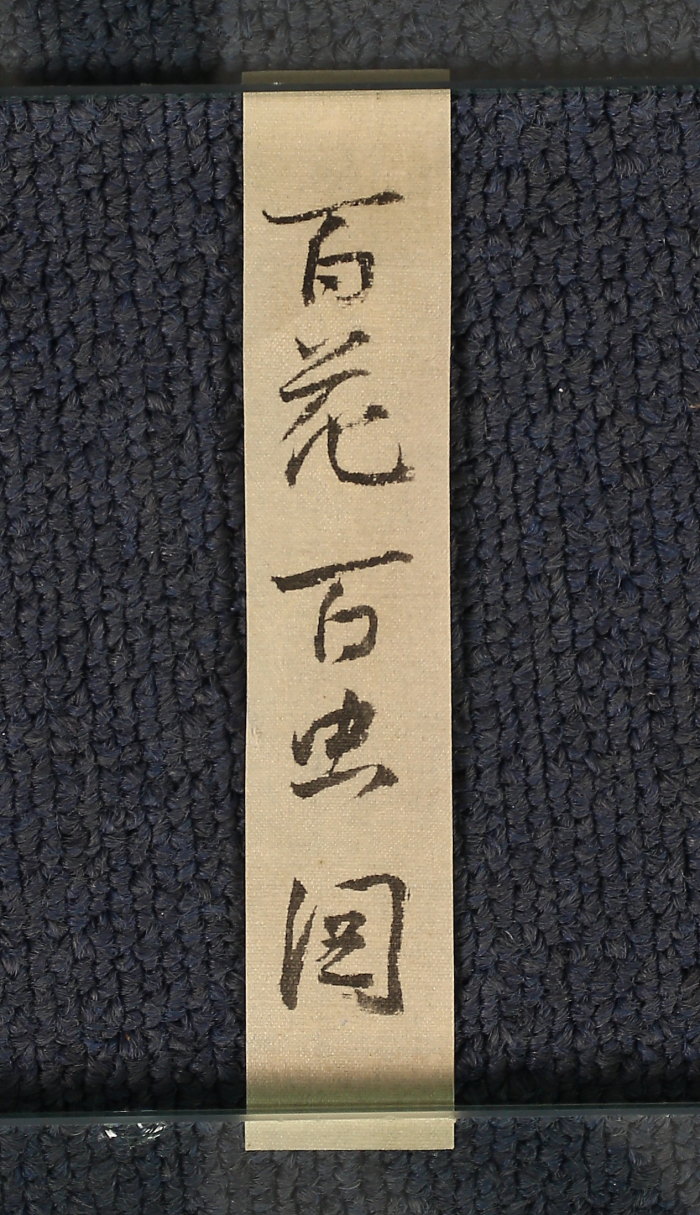 百花百虫图